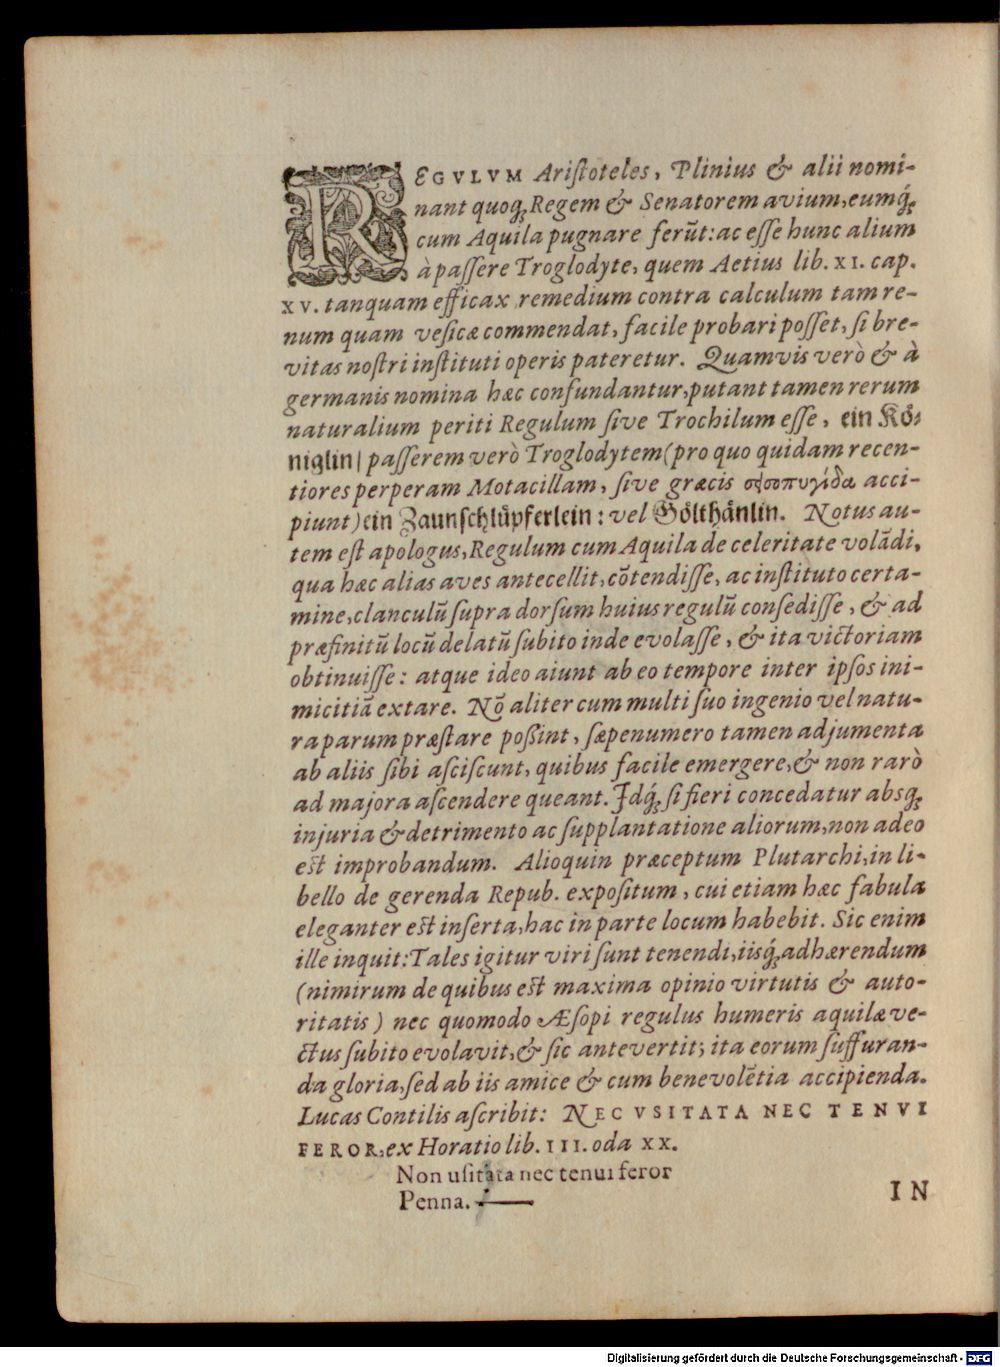 REGVLVM Ariſtoteles, Plinius & alii nomi-
nant quoq́; Regem & Senatorem avium, eumq́;
cum Aquila pugnare ferũt: ac eſſe hunc alium
à paſſere Troglodyte, quem Aetius lib. XI. cap.
XV. tanquam efficax remedium contra calculum tam re-
num quam veſicæ commendat, facile probari poſſet, ſi bre-
vitas noſtri inſtituti operis pateretur. Quamvis verò & à
germanis nomina hæc confundantur, putant tamen rerum
naturalium periti Regulum ſive Trochilum eſſe, ein Koͤ-
niglin/ paſſerem verò Troglodytem (pro quo quidam recen-
tiores perperam Motacillam, ſive græcis σεισοπυγίδα acci-
piunt) ein Zaunſchluͤpferlein: vel Goͤlthaͤnlin. Notus au-
tem eſt apologus, Regulum cum Aquila de celeritate volãdi,
qua hæc alias aves antecellit, cõtendiſſe, ac inſtituto certa-
mine, clanculũ ſupra dorſum huius regulũ conſediſſe, & ad
præfinitũ locũ delatũ ſubito inde evolaſſe, & ita victoriam
obtinuiſſe: atque ideo aiunt ab eo tempore inter ipſos ini-
micitiã extare. Nõ aliter cum multi ſuo ingenio vel natu-
ra parum præſtare poßint, ſæpenumero tamen adjumenta
ab aliis ſibi aſciſcunt, quibus facile emergere, & non rarò
ad majora aſcendere queant. Idq́; ſi fieri concedatur absq́;
injuria & detrimento ac ſupplantatione aliorum, non adeo
eſt improbandum. Alioquin præceptum Plutarchi, in li-
bello de gerenda Repub. expoſitum, cui etiam hæc fabula
eleganter eſt inſerta, hac in parte locum habebit. Sic enim
ille inquit: Tales igitur viri ſunt tenendi, iisq́; adhærendum
(nimirum de quibus eſt maxima opinio virtutis & auto-
ritatis) nec quomodo Æſopi regulus humeris aquilæ ve-
ctus ſubito evolavit, & ſic antevertit; ita eorum ſuffuran-
da gloria, ſed ab iis amice & cum benevolẽtia accipienda.
Lucas Contilis aſcribit: NEC VSITATA NEC TENVI
FEROR, ex Horatio lib. III. oda XX.
Non uſitata nec tenui feror
Penna.
IN
Digitalisierung gefördert durch die Deutsche Forschungsgemeinschaft - DFG